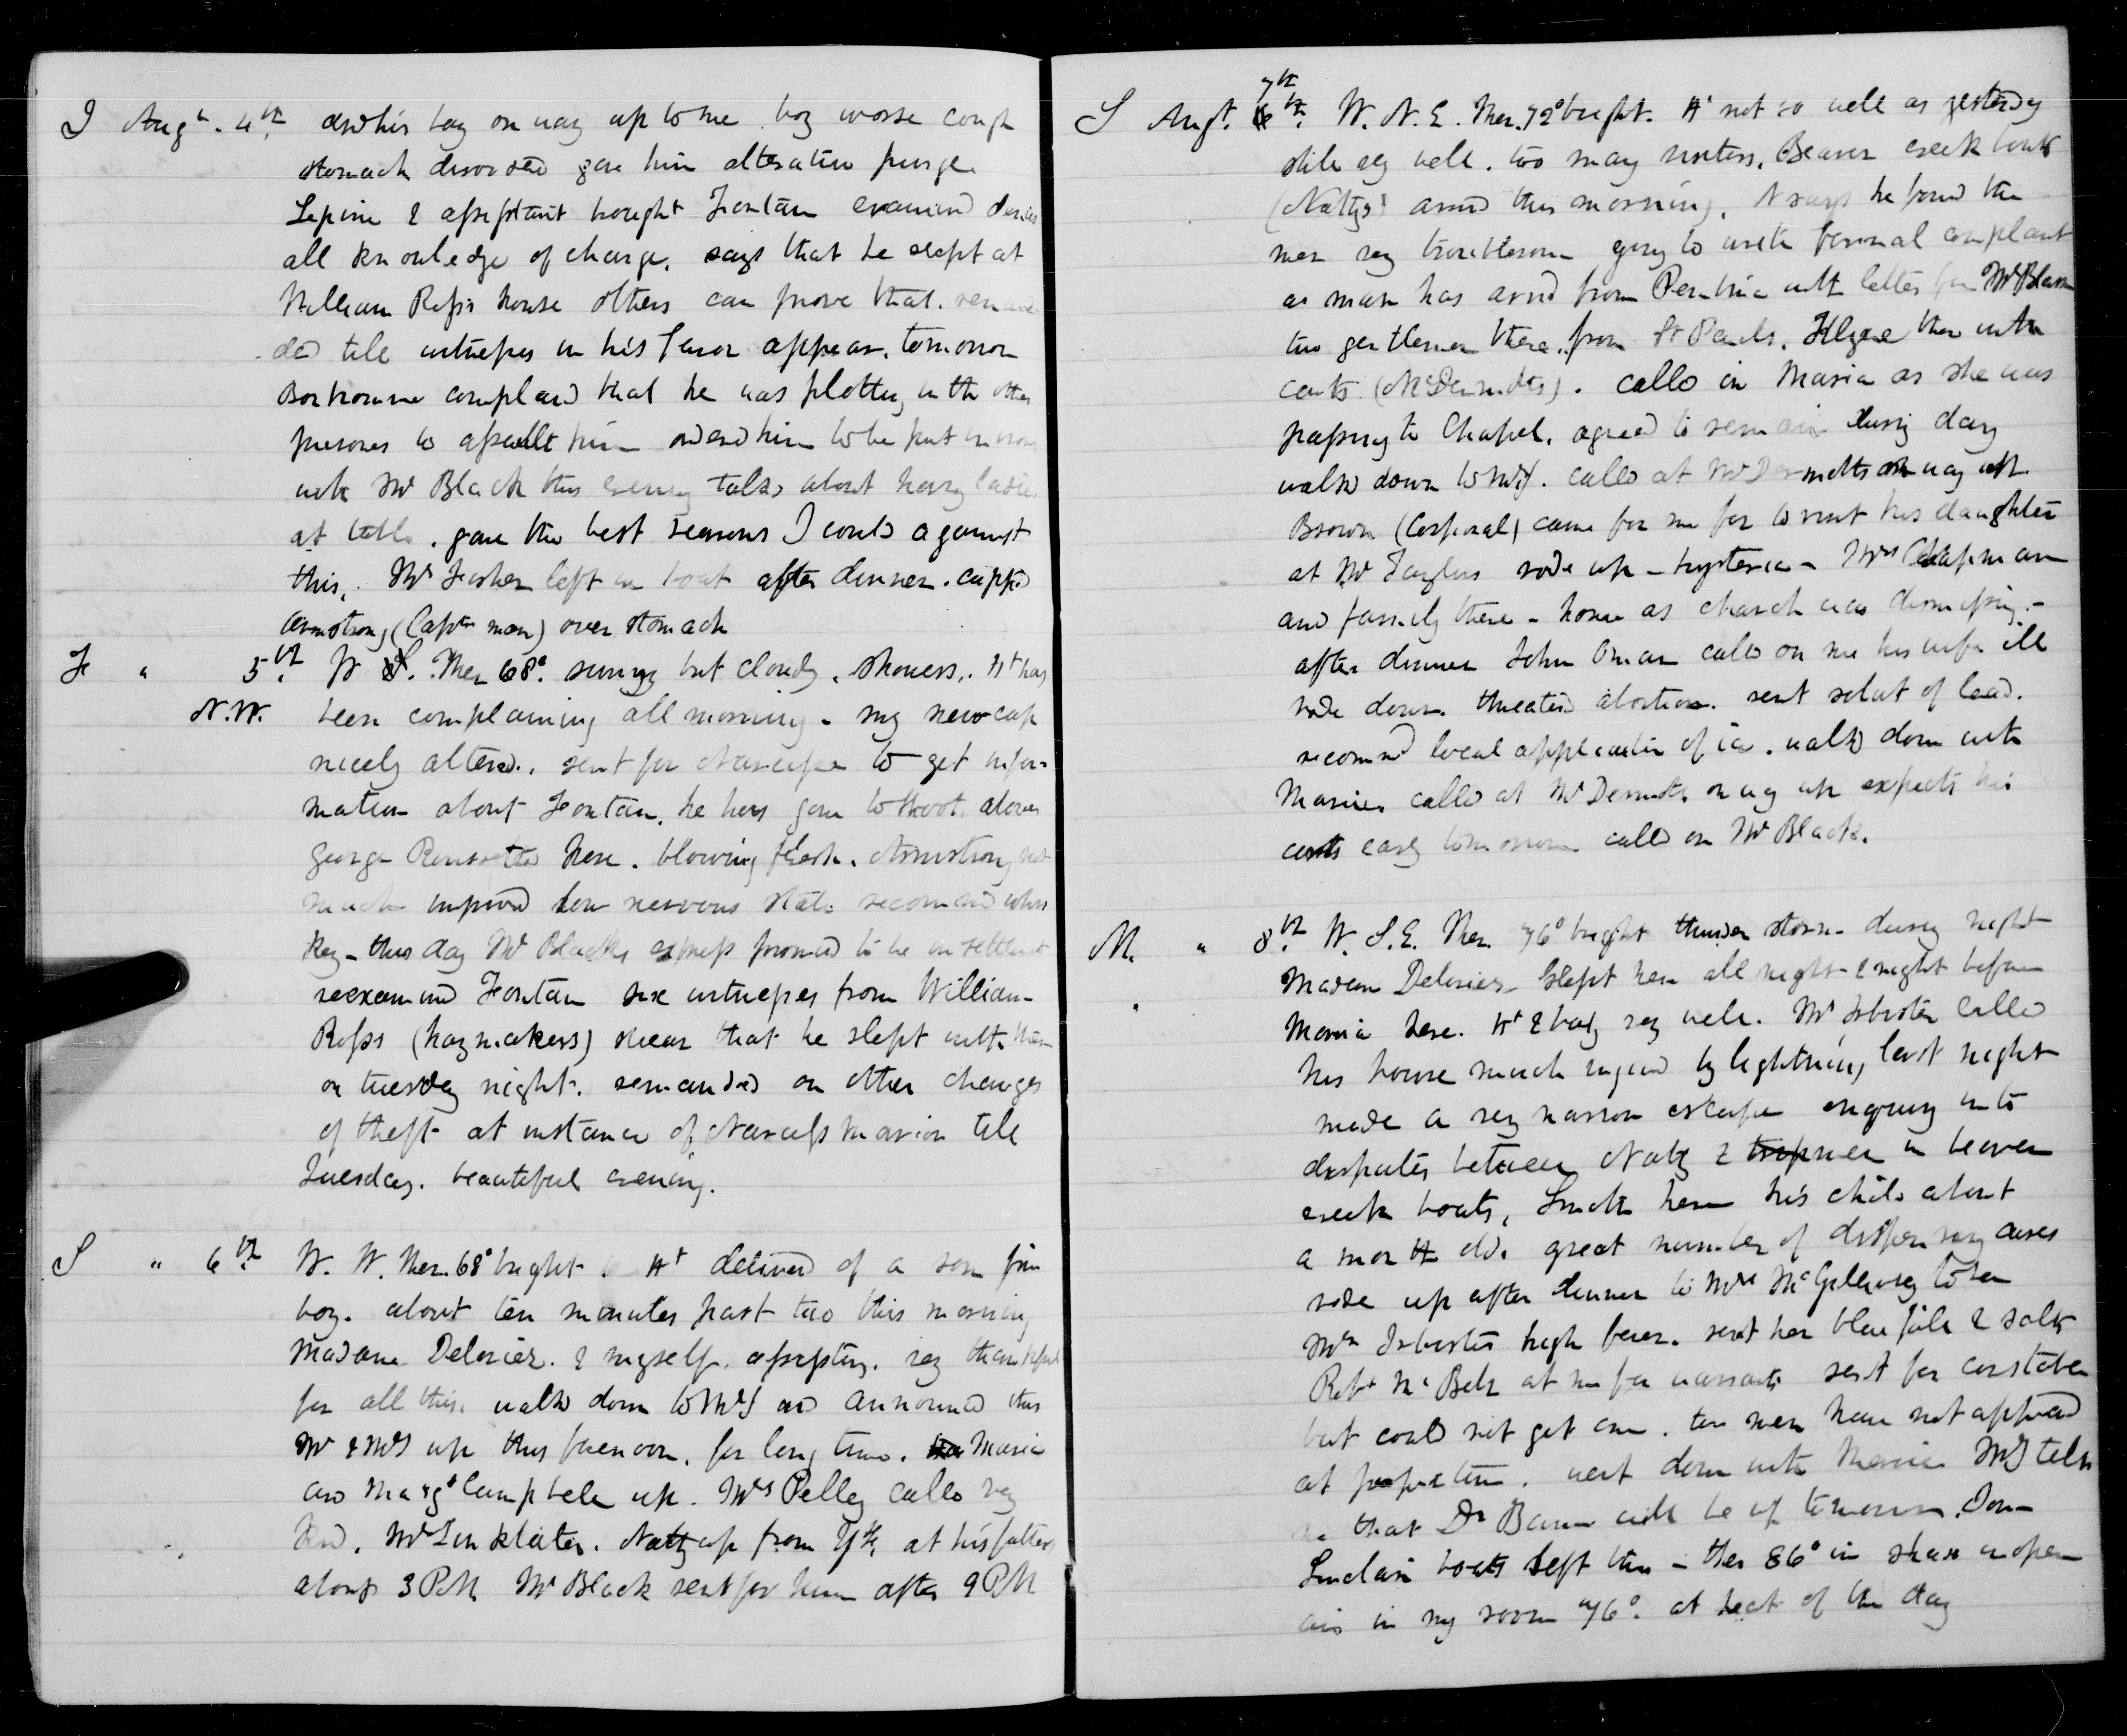 T Augt. 4th and his boy on way up to me boy worse cough
stomach disordered gave him alterative purge.
Lepine & assistant brought Fontain examined denies
all knowledge of charge. says that he slept at
William Ross's house others can prove that.
ded till witnesses in his favor appear. tomorrow
complained that he was plotting with other
prisoners to assault him ordered him to be put in irons
with Mr Black this evening talked about having ladies
at table. gave the best reasons I could against
this. Mr Fisher left in boat after dinner. cupped
Armstrong (Captn man) over stomach
F " 5th W S. Ther 68° sunny but cloudy. showers. Ht has
N.W. been complaining all morning - my new cap
nicely altered. sent for Narcisse to get infor-
mation about Fontain. he has gone to shoot
George Roussette here. blowing fresh. Armstrong not
much improved low nervous state recommend whis
key - this day Mr Blacks express promised to be in settlement
reexamined Fontain six witnesses from William
Ross (haymakers) swear that he slept with them
on tuesday night. remanded on other charges
of theft at instance of Narcisse Marion till
Tuesday. beautiful evening.
S " 6th W. W. Ther. 68° bright. Ht delivered of a son fine
boy. about ten minutes past two this morning
Madame Delorier. & myself. assisting. very thankful
for all this. walked down to McD and announced this
Mr & Mrs up this forenoon. for long time. Maria
and Margt Campbell up. Mrs Pelly called very
kind. Mr Sinklater. Natty up from YF. at his fathers
about 3 PM Mr Black sent for him after 9 PM
S Augt. 7th 6th. W. N. E. Ther. 72° bright. Ht not so well as yesterday
still very well. too many visitors. Beaver creek boats
(Nattys) arrived this morning. N says he found the
men very troublesome going to make formal complaint
a man has arrived from Pembina with letter for Mr Black
two gentlemen there from St Pauls. there with
carts (McDermots). called in Maria as she was
passing to Chapel. agreed to remain during day
walked down to McD. called at McDermotts on way up.
Brown (Corporal) came for me for to visit his daughter
at Mr Taylors rode up - hysteria - Mrs Chapman
and family there - home as church was dismissing -
after dinner John Oman called on me his wife ill
rode down. threatened abortion. sent solut of lead.
recommd local application of ice. walked down with
Maria. called at McDermots on way up expects his
carts early tomorrow called on Mr Black.
M. " 8th W. S. E. Ther. 76° bright thunder storm during night
Madam Delorier slept here all night & night before
Maria here. Ht & baby very well. Mr Isbister called
his house much injured by lightning last night
made a very narrow escape enquiry into
disputes between Natty & men in beaver
creek boats. Smith here his child about
a month old. great number of dispensary cases
rode up after dinner to Mrs McGillivray to see
Mrs Isbister high fever. sent her blue pill & salts
Robt McBeth at me for warrants sent for constable
but could not get one. ten men have not appeared
at proper time. went down with Maria McD tells
me that Dr Bunn will be up tomorrow. Tom
Sinclair boats left this - ther 86° in shade in open
air in my room 76°. at heat of the day